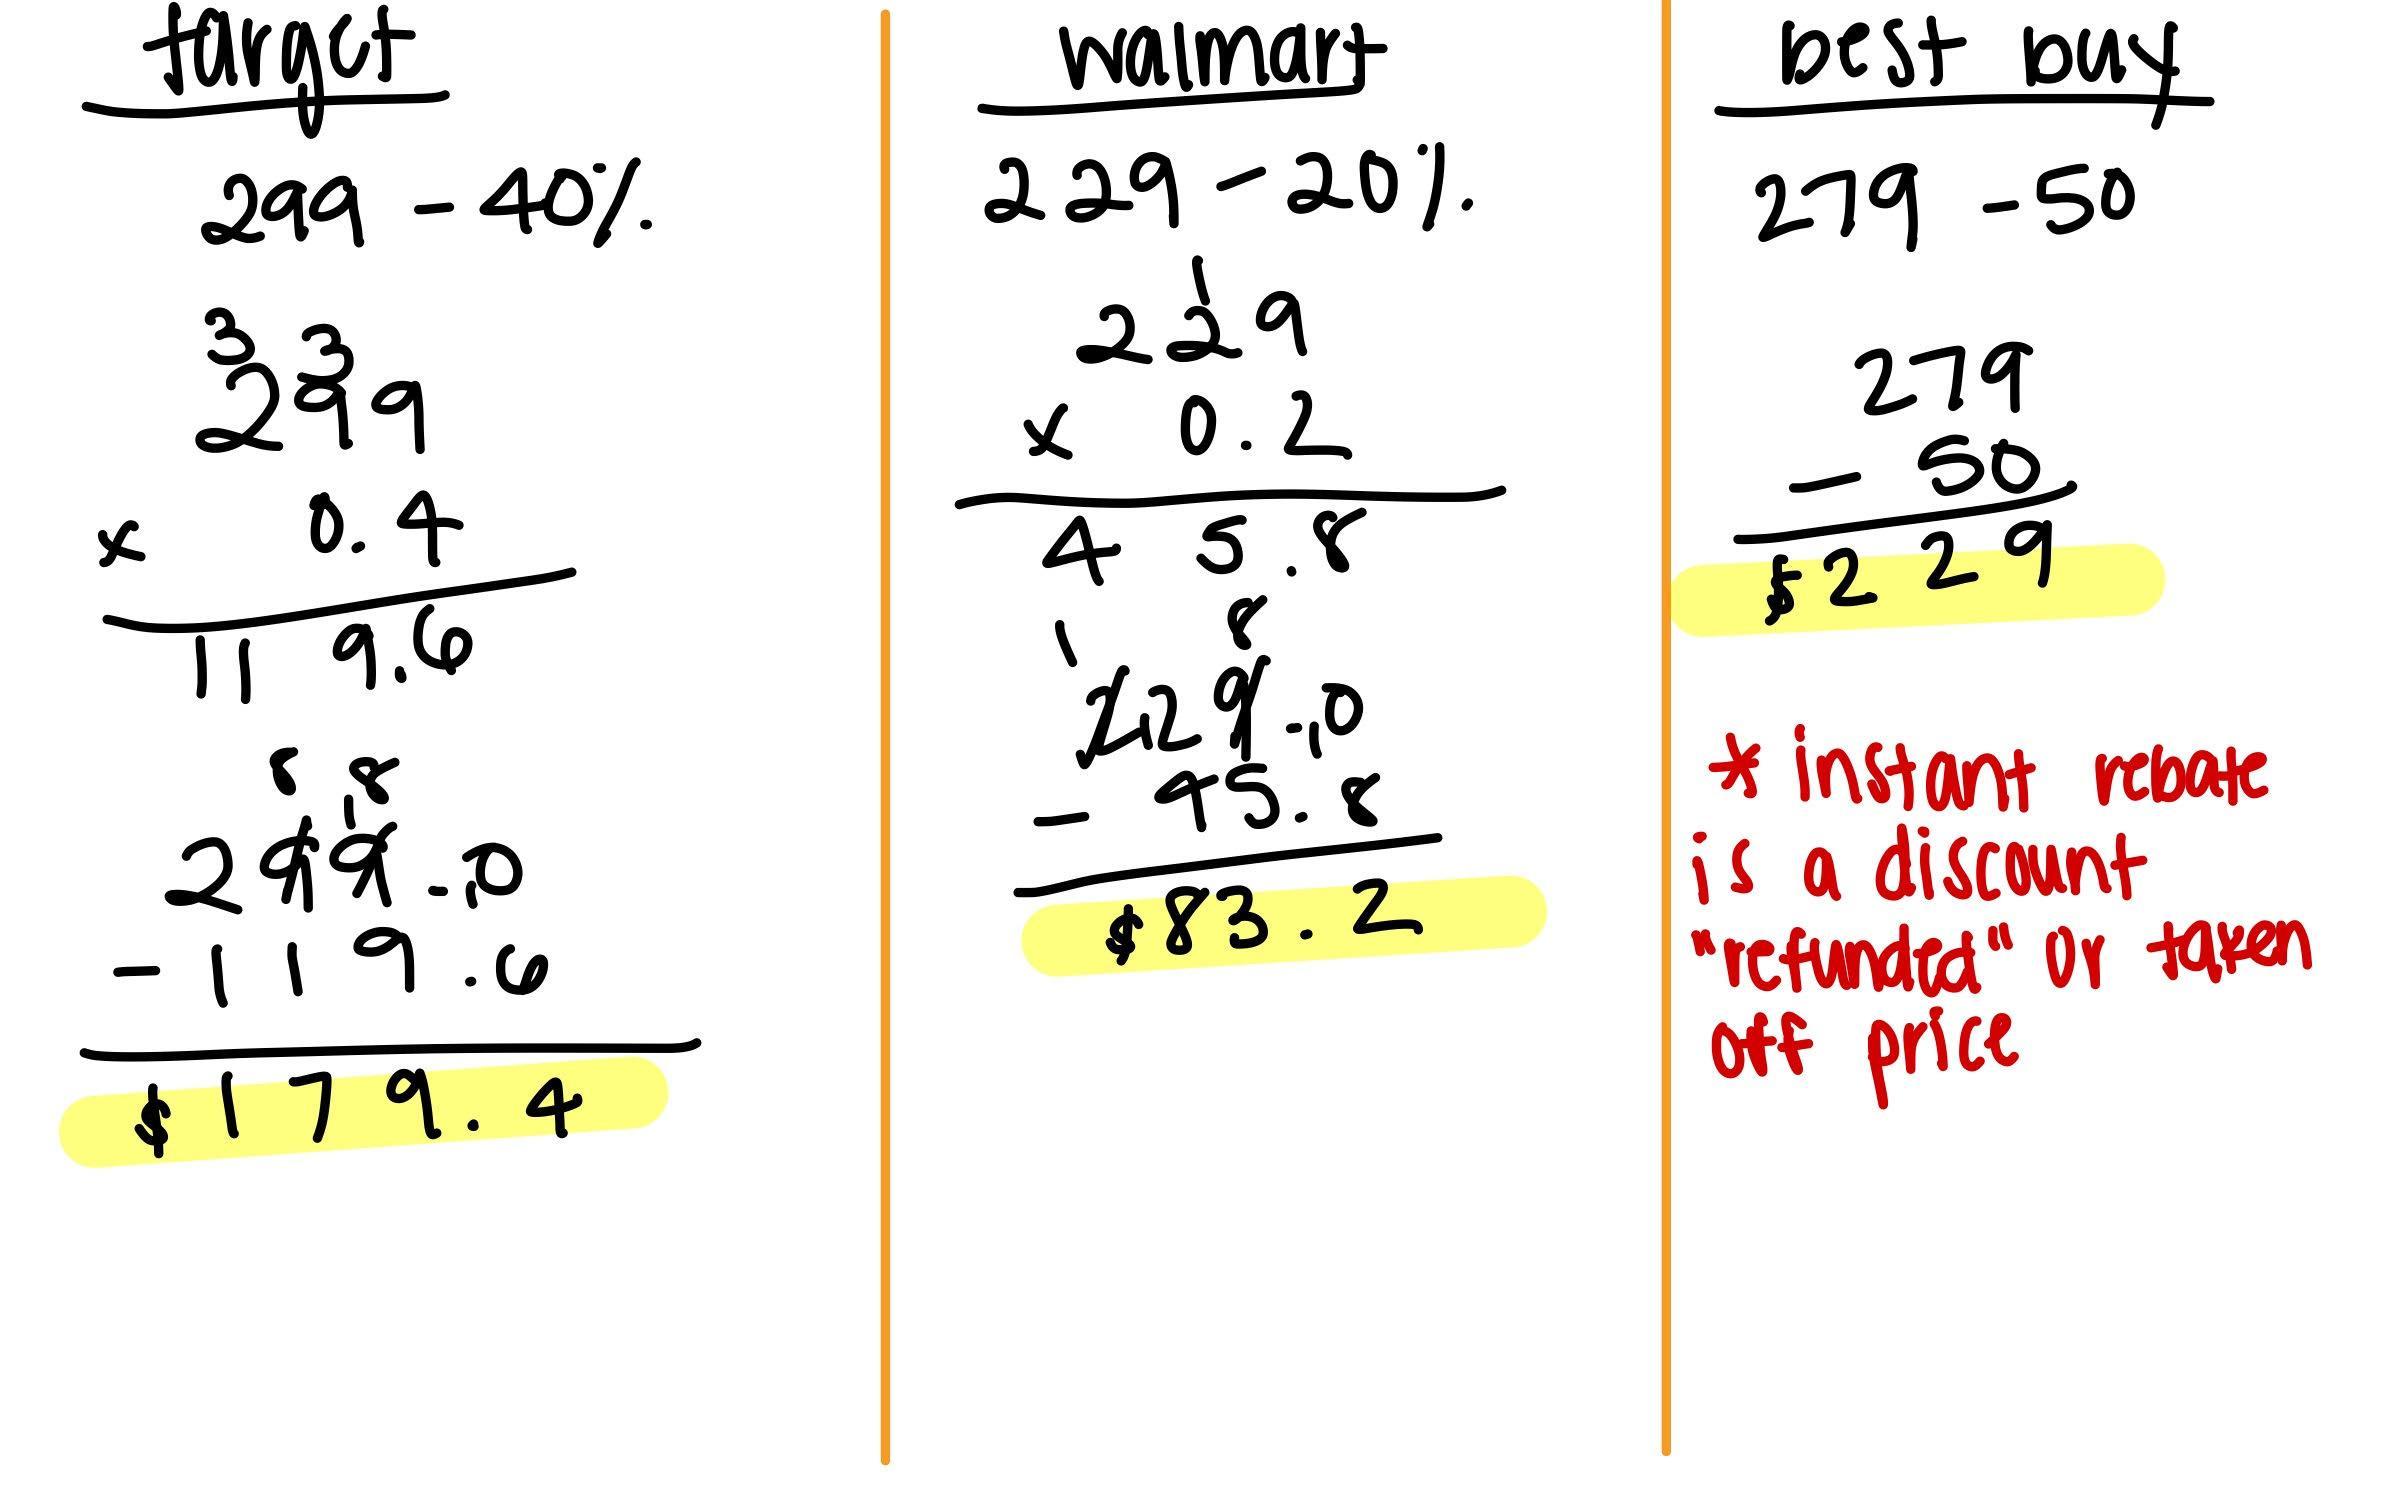 target
299 - 40%
3 3
299
x 0.4
119.6
8 8
1
299.10
- 119.6
$179.4
walmart
229 - 20%
1
229
x 0.2
45.8
1 8
2129.10
- 45.8
$83.2
best buy
279 - 50
279
- 50
$229
* instant rebate
is a discount
"refunded" or taken
off price